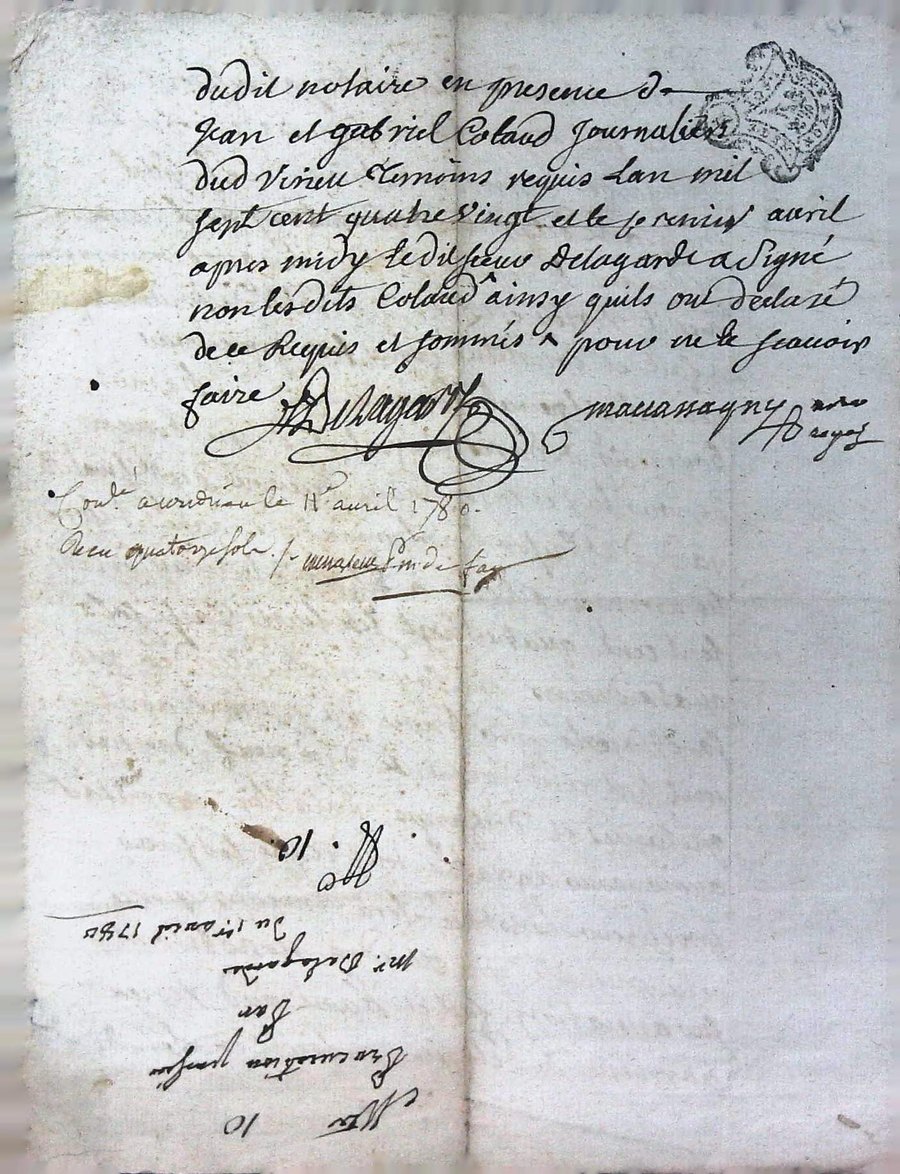 dudit notaire en presence de
Jean et gabriel Colaud Journaliers
dud Virieu témoins requis Lan mil
sept cent quatre vingt et le premier avril
apres midy ledit sieur Delagarde a Signé
non lesdits Colaud ainsy quils ont declaré
de ce Requis et sommés pour ne le scavoir
faire Delagarde
Conlé a le 1er avril 1780.
Recu quatorze sols.
10
Procuration passée
Par
Mr. Delagarde
du 1er avril 1780
10